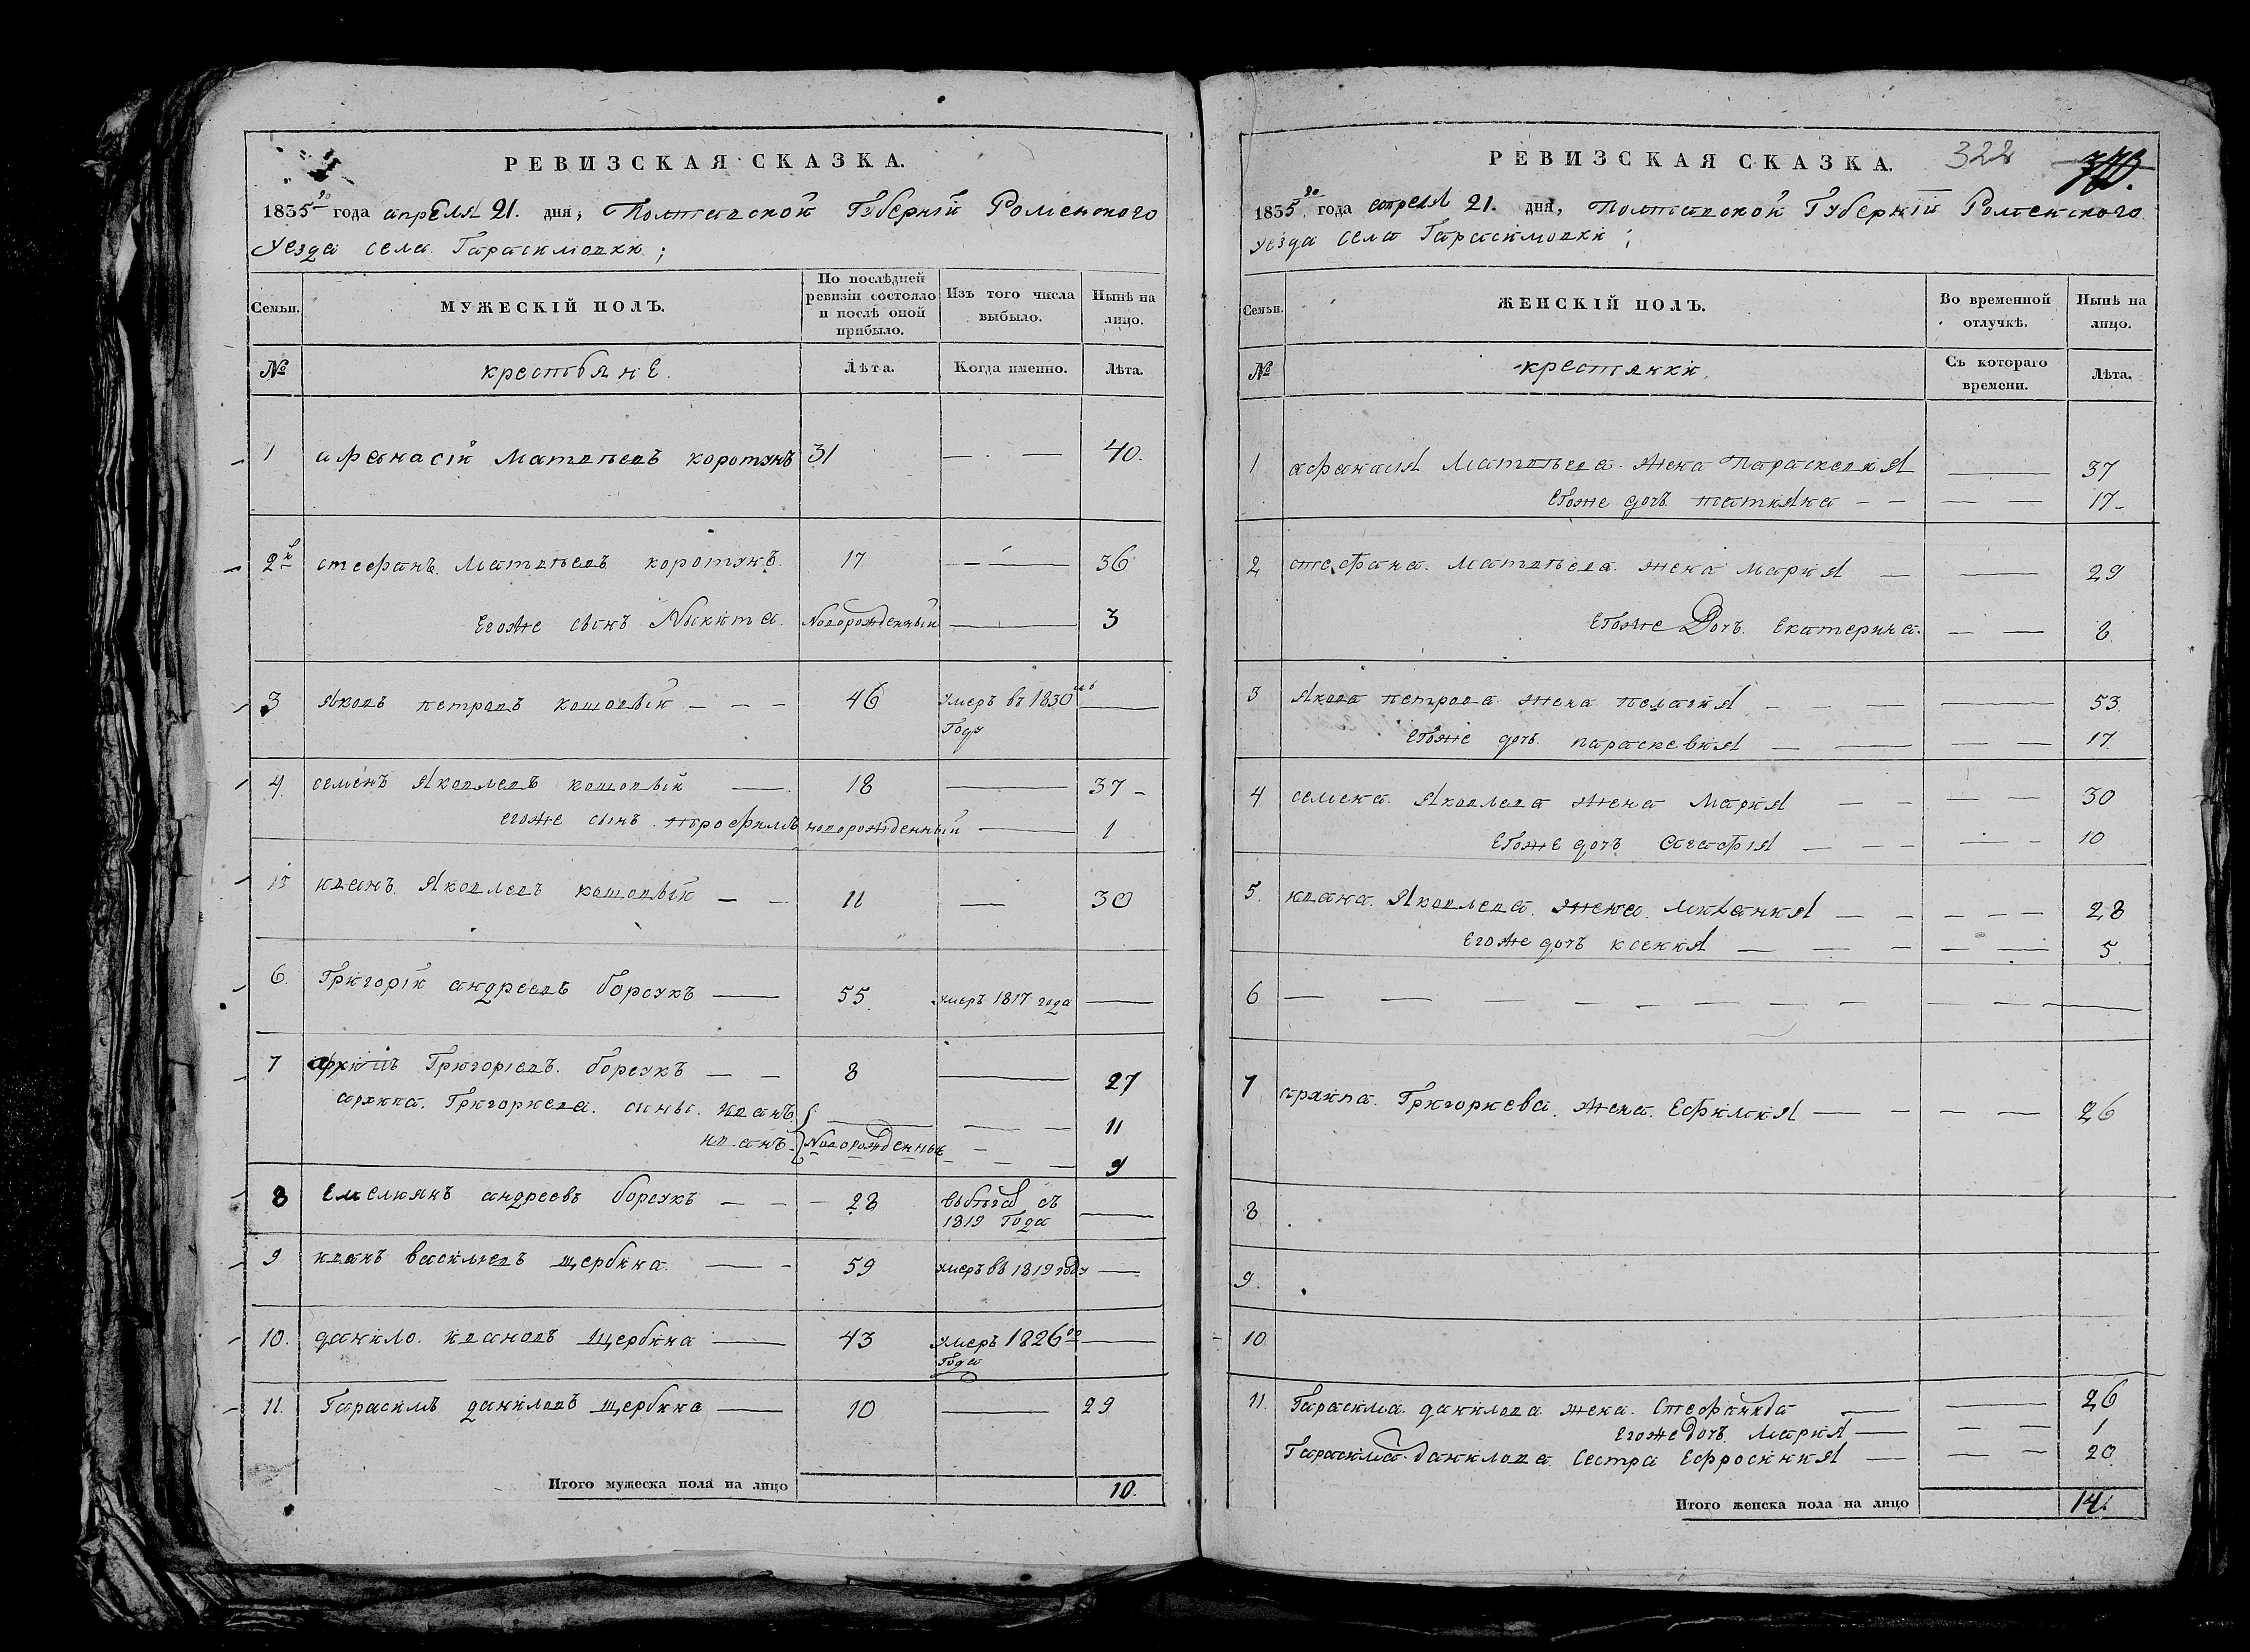 РЕВИЗСКАЯ СКАЗКА.
1835го года апреля 21. дня, Полтавской Губерніи Роменского
уезда села Гарасимовки;
Семьи. МУЖЕСКІЙ ПОЛЪ. По послѣдней ревизіи состояло и послѣ оной прибыло. Изъ того числа выбыло. Нынѣ на лицо.
№ крестьяне. Лѣта. Когда именно. Лѣта.
1 афанасій Матвѣевъ коротунъ 31 — — 40.
2й стефанъ Матвѣевъ коротунъ. 17 — — 36
Егоже сынъ Никита. Новорожденный — 3
3 Яковъ петровъ кошовый — — — 46 умеръ въ 1830мъ Году —
4. семенъ Яковлевъ кошовый — 18 — 37 -
егоже сынъ трофимъ новорожденный — 1
5 иванъ Яковлевъ кошовый — — 11 — 30
6. Григорій андреевъ борсукъ — 55. умеръ 1817 года —
7 архипъ Григоріевъ. борсукъ — — 8 — 27
архипа. Григориева. сины. иванъ — — — 11
иванъ. Новорожденные — — — 9
8 Емелиянъ андреевъ борсукъ — — — 28 въ бѣга съ 1819 Года —
9 иванъ василиевъ щербина. — - 59 умеръ въ 1819 году —
10. данило. ивановъ щербина — 43 умеръ 1826го Года —
11. Гарасимъ даниловъ щербина — 10 — 29
Итого мужеска пола на лицо 10.
РЕВИЗСКАЯ СКАЗКА. 322
1835го года апреля 21. дня, Полтавской Губерніи Роменского
уезда села Гарасимовки;
Семьи. ЖЕНСКІЙ ПОЛЪ. Во временной отлучкѣ. Нынѣ на лицо.
№ крестянки. Съ котораго времени. Лѣта.
1 афанасия Матвѣева. жена Параскевия — 37
Егоже дочь татияна — — — — 17 -
2 стефана. Матвѣева. жена Мария — — 29
Егоже Дочь. Екатерина. — — 8
3 Якова петрова жена пелагия — — — — 53.
Егоже дочь. параскевия — — — — 17.
4 семена. Яковлева жена Мария — — — — 30
Егоже дочь агафія — — — — - 10
5. ивана. Яковлева. жена. Милания — — — — — 28
егоже дочь ксения — — — — — 5.
6 — — — — — — — — — — —
7 архипа. Григориева. жена. Ефимия — — — — 26
8
9.
10
11. Гарасима. данилова жена. Стефанида — — 26
Егоже дочь. Мария — — — 1
Гарасима. данилова. Сестра Ефросиния — — — 20
Итого женска пола на лицо 14.